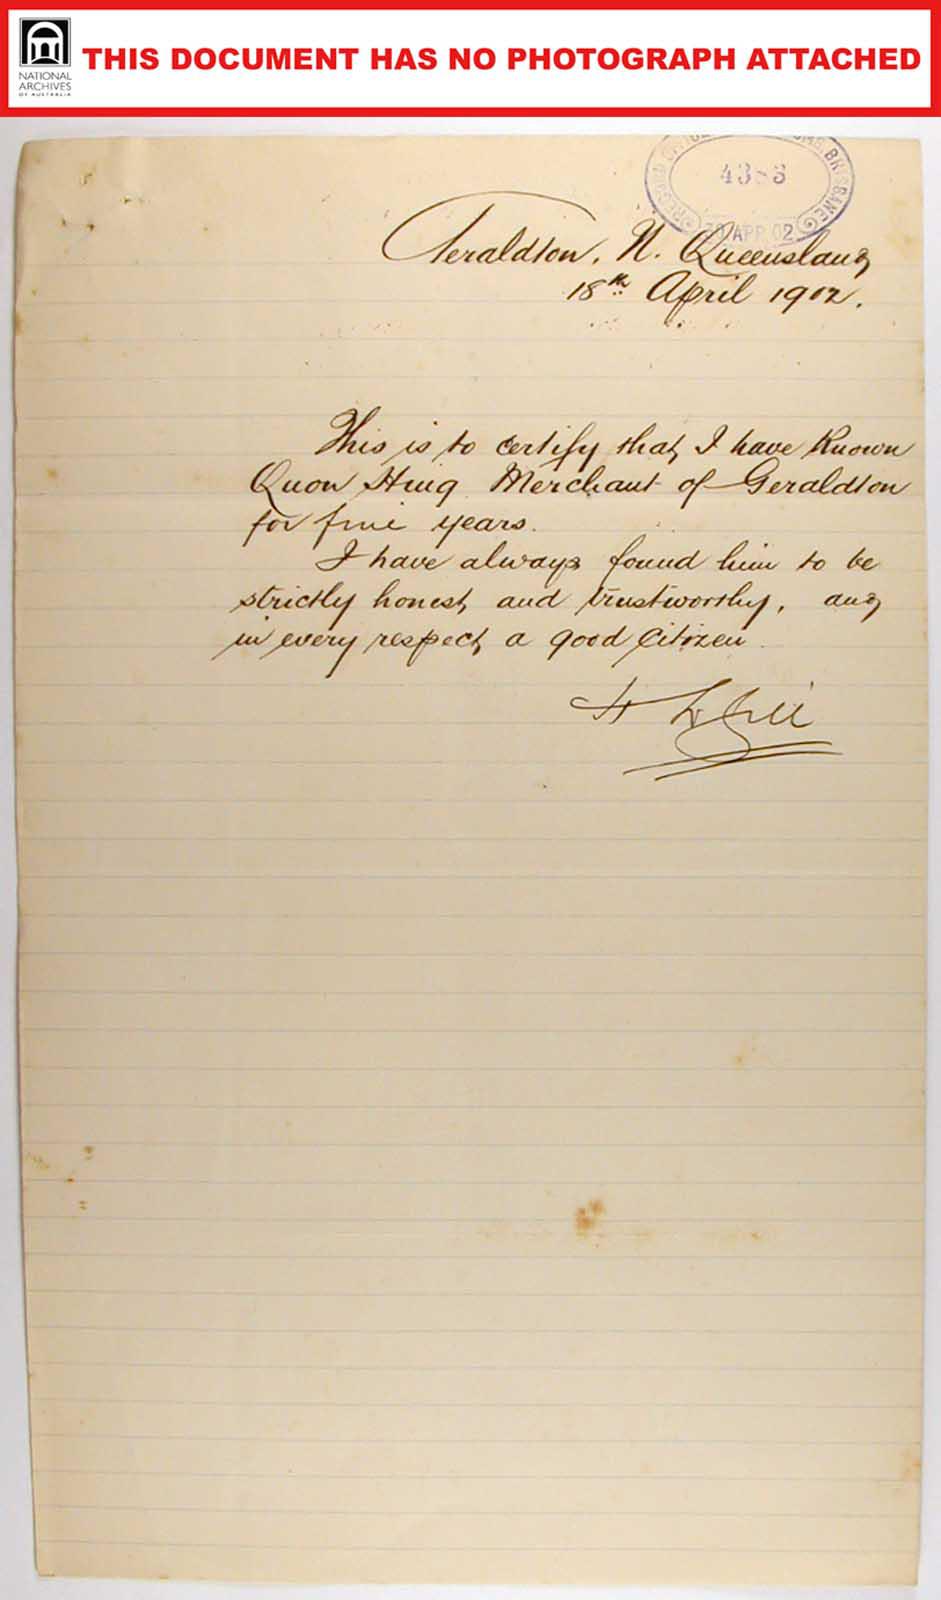 NATIONAL
ARCHIVES
OF AUSTRALIA
THIS DOCUMENT HAS NO PHOTOGRAPH ATTACHED
RECORD OFFICE BRISBANE
APR 02
Geraldton, N. Queensland
18th April 1902.
This is to certify that I have Known
Quon Hing Merchant of Geraldton
for five years.
I have always found him to be
strictly honest, and trustworthy, and
in every respect a good Citizen.